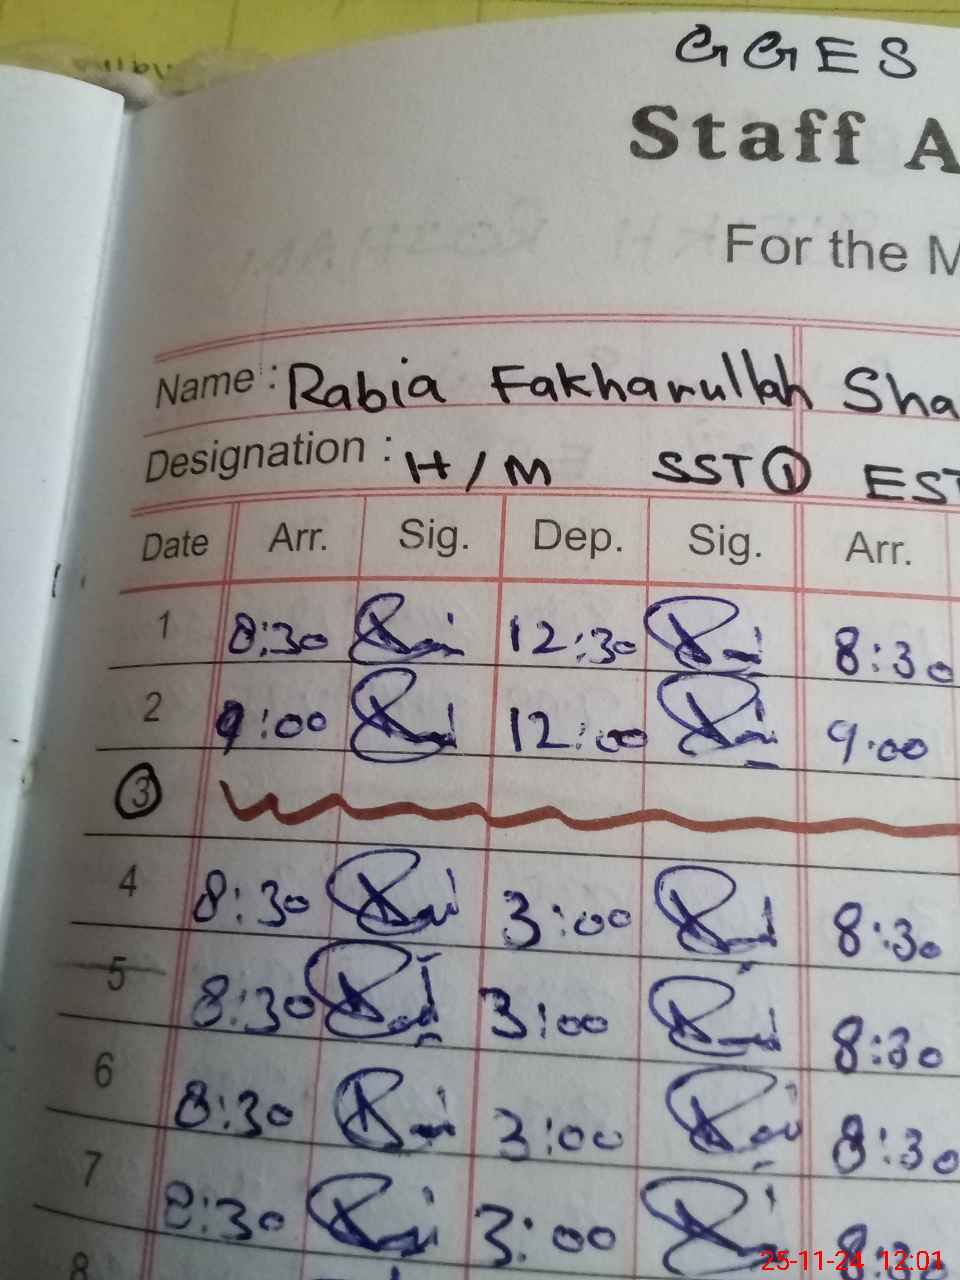 GGES
Staff A
For the M
Name : Rabia Fakharullah Sha
Designation : H/M SST ① EST
Date Arr. Sig. Dep. Sig. Arr.
1 8:30 12:30 8:30
2 9:00 12:00 9.00
3
4 8:30 3:00 8:30
5 8:30 3:00 8:30
6 8:30 3:00 8:30
7 8:30 3:00
8
25-11-24 12:01